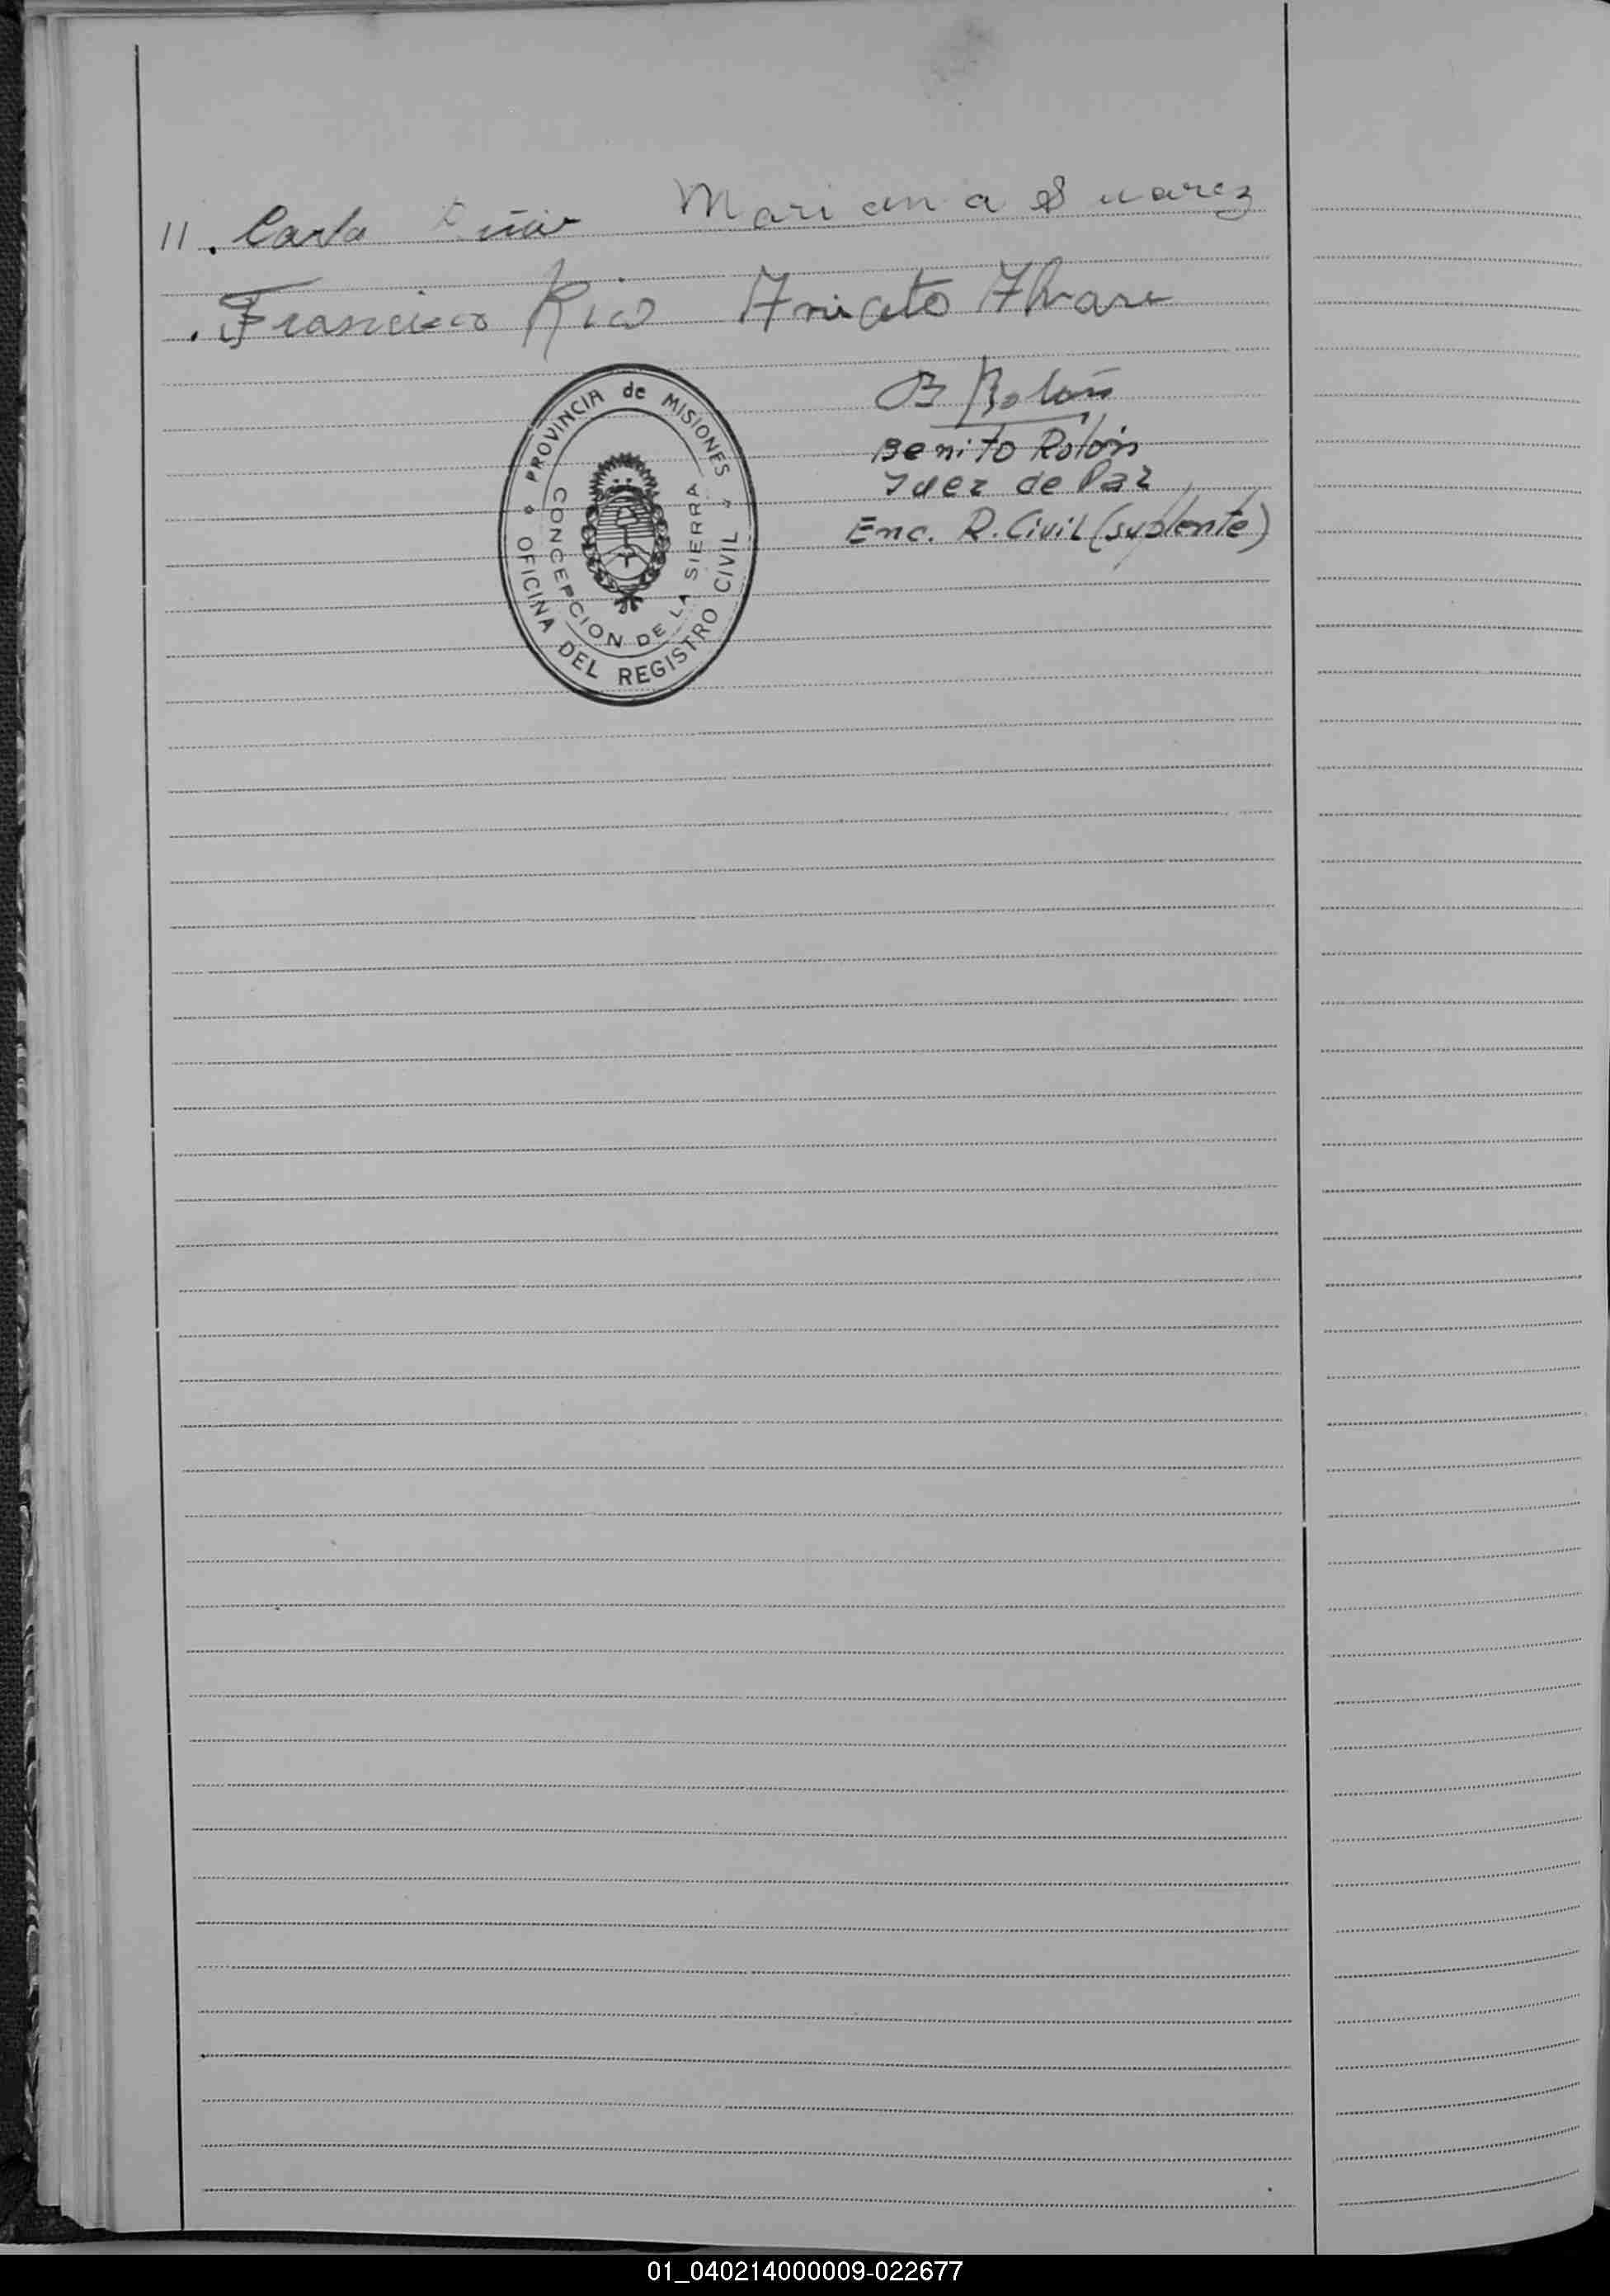 11. Mariana Suarez
. Francisco Rico Aniceto Alvare
B Rolón
Benito Rolón
Juez de Paz
Enc. R. Civil (suplente)
PROVINCIA de MISIONES
OFICINA DEL REGISTRO CIVIL
CONCEPCION DE LA SIERRA
01_040214000009-022677